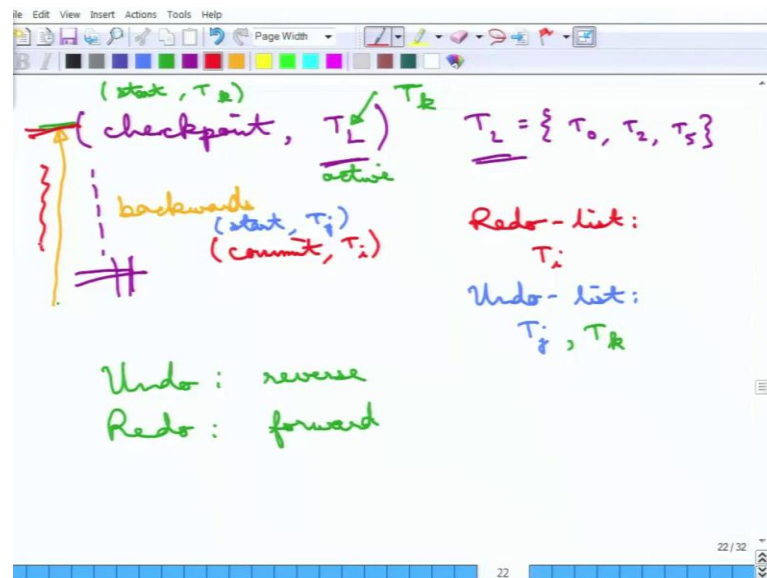 ile Edit View Insert Actions Tools Help
Page Width
B I
(start, Tk)
Tk
(checkpoint, TL)
active
TL = { T0, T2, T5 }
backwards
(start, Tj)
(commit, Ti)
Redo-list:
Ti
Undo-list:
Tj, Tk
Undo: reverse
Redo: forward
22/32
22